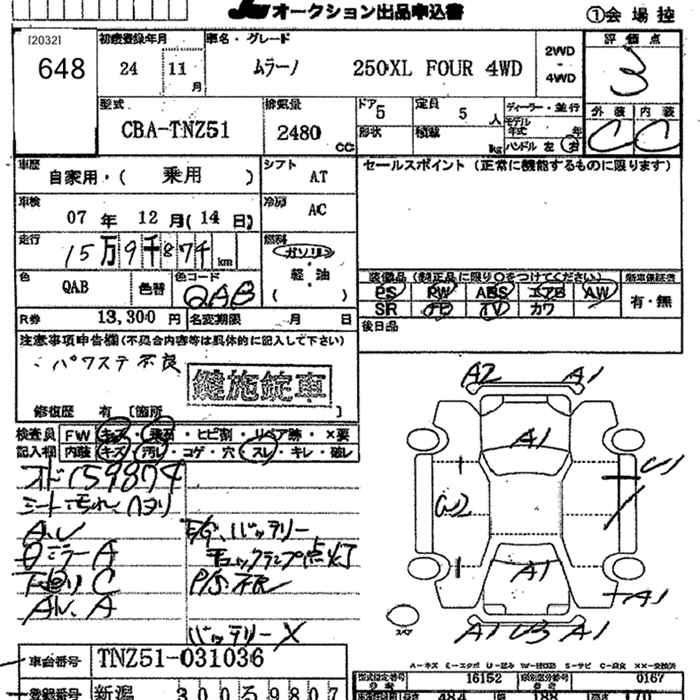 オークション出品申込書
①会場控
[2032]
648
初度登録年月
24 11月
車名・グレード
ムラーノ 250XL FOUR 4WD
2WD
・
4WD
評価点
3
外装 内装
C C
型式
CBA-TNZ51
排気量
2480
CC
ドア 5
定員 5 人
形状
積載 kg
ディーラー・並行
モデル年式 年
ハンドル 左 右
車歴
自家用・( 乗用 )
シフト
AT
セールスポイント (正常に機能するものに限ります)
車検
07年 12月(14日)
冷房
AC
走行
15万9千874km
燃料
ガソリン
・
軽・油
( )
色
QAB
色替
色コード
QAB
装備品 (純正品に限り○をつけてください)
PS PW ABS エアB AW
SR ナビ TV カワ
新車保証書
有・無
R券 13,300円
名変期限 月 日
後日品
注意事項申告欄(不具合内容等は具体的に記入して下さい)
パワステ不良
鍵施錠車
修復歴 有 [箇所 ]
検査員
記入欄
FW キズ・飛石・ヒビ割・リペア跡・×要
内装 キズ・汚レ・コゲ・穴・スレ・キレ・破レ
159874
シート汚れ、ヘタリ
E/G、バッテリー
チェックランプ点灯
P/S不良
下回り C
バッテリー X
A2 A1
A1
U1
W2
A1
A1
A1 U3 A1
スペア
A-キズ E-エクボ U-凹み W-補修跡 S-サビ C-腐食 XX-交換済
車台番号
TNZ51-031036
型式指定番号 16152
類別区分番号 0167
登録番号
新潟 300る9807
長さ 484
188
高さ 170